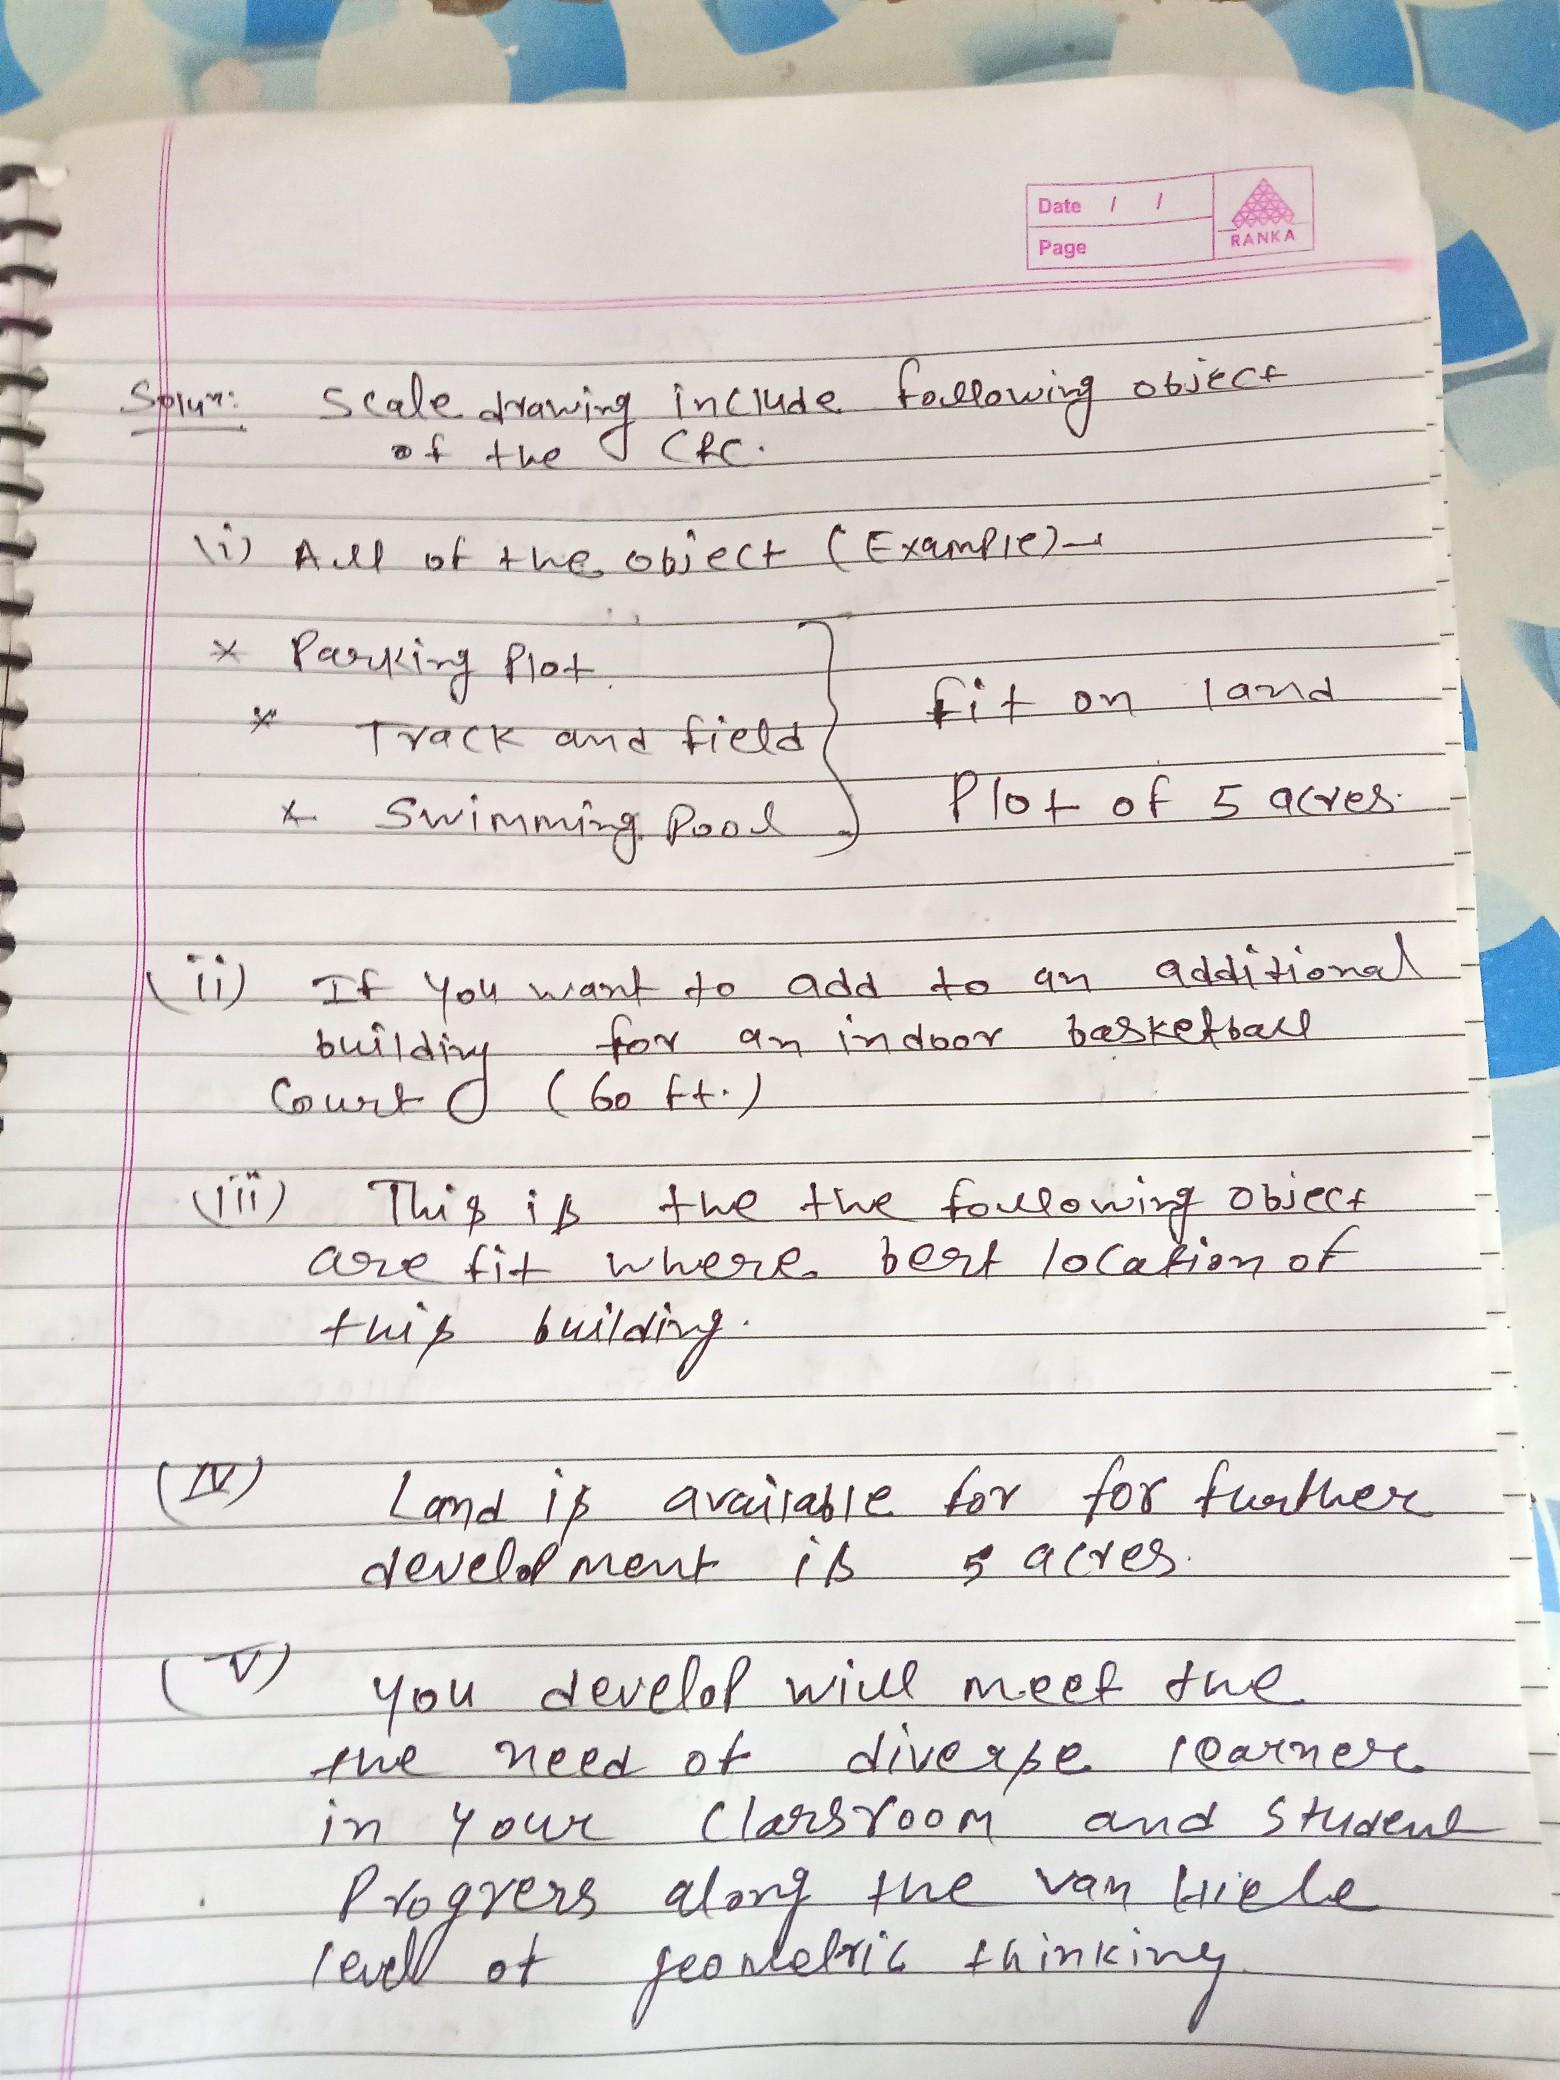 Date / /
Page
RANKA
Solun: Scale drawing include following object
of the CRC.
(i) All of the object (Example)→
* Parking Plot.
* Track and field
* Swimming Pool
fit on land
Plot of 5 acres.
(ii) If you want to add to an additional
building for an indoor basketball
Court (60 ft.)
(iii) This is the the following object
are fit where best location of
this building.
(IV) Land is available for for further
development is 5 acres.
(V) you develop will meet the
the need of diverse learner
in your Classroom and Student
Progress along the van Hiele
level of geometric thinking.